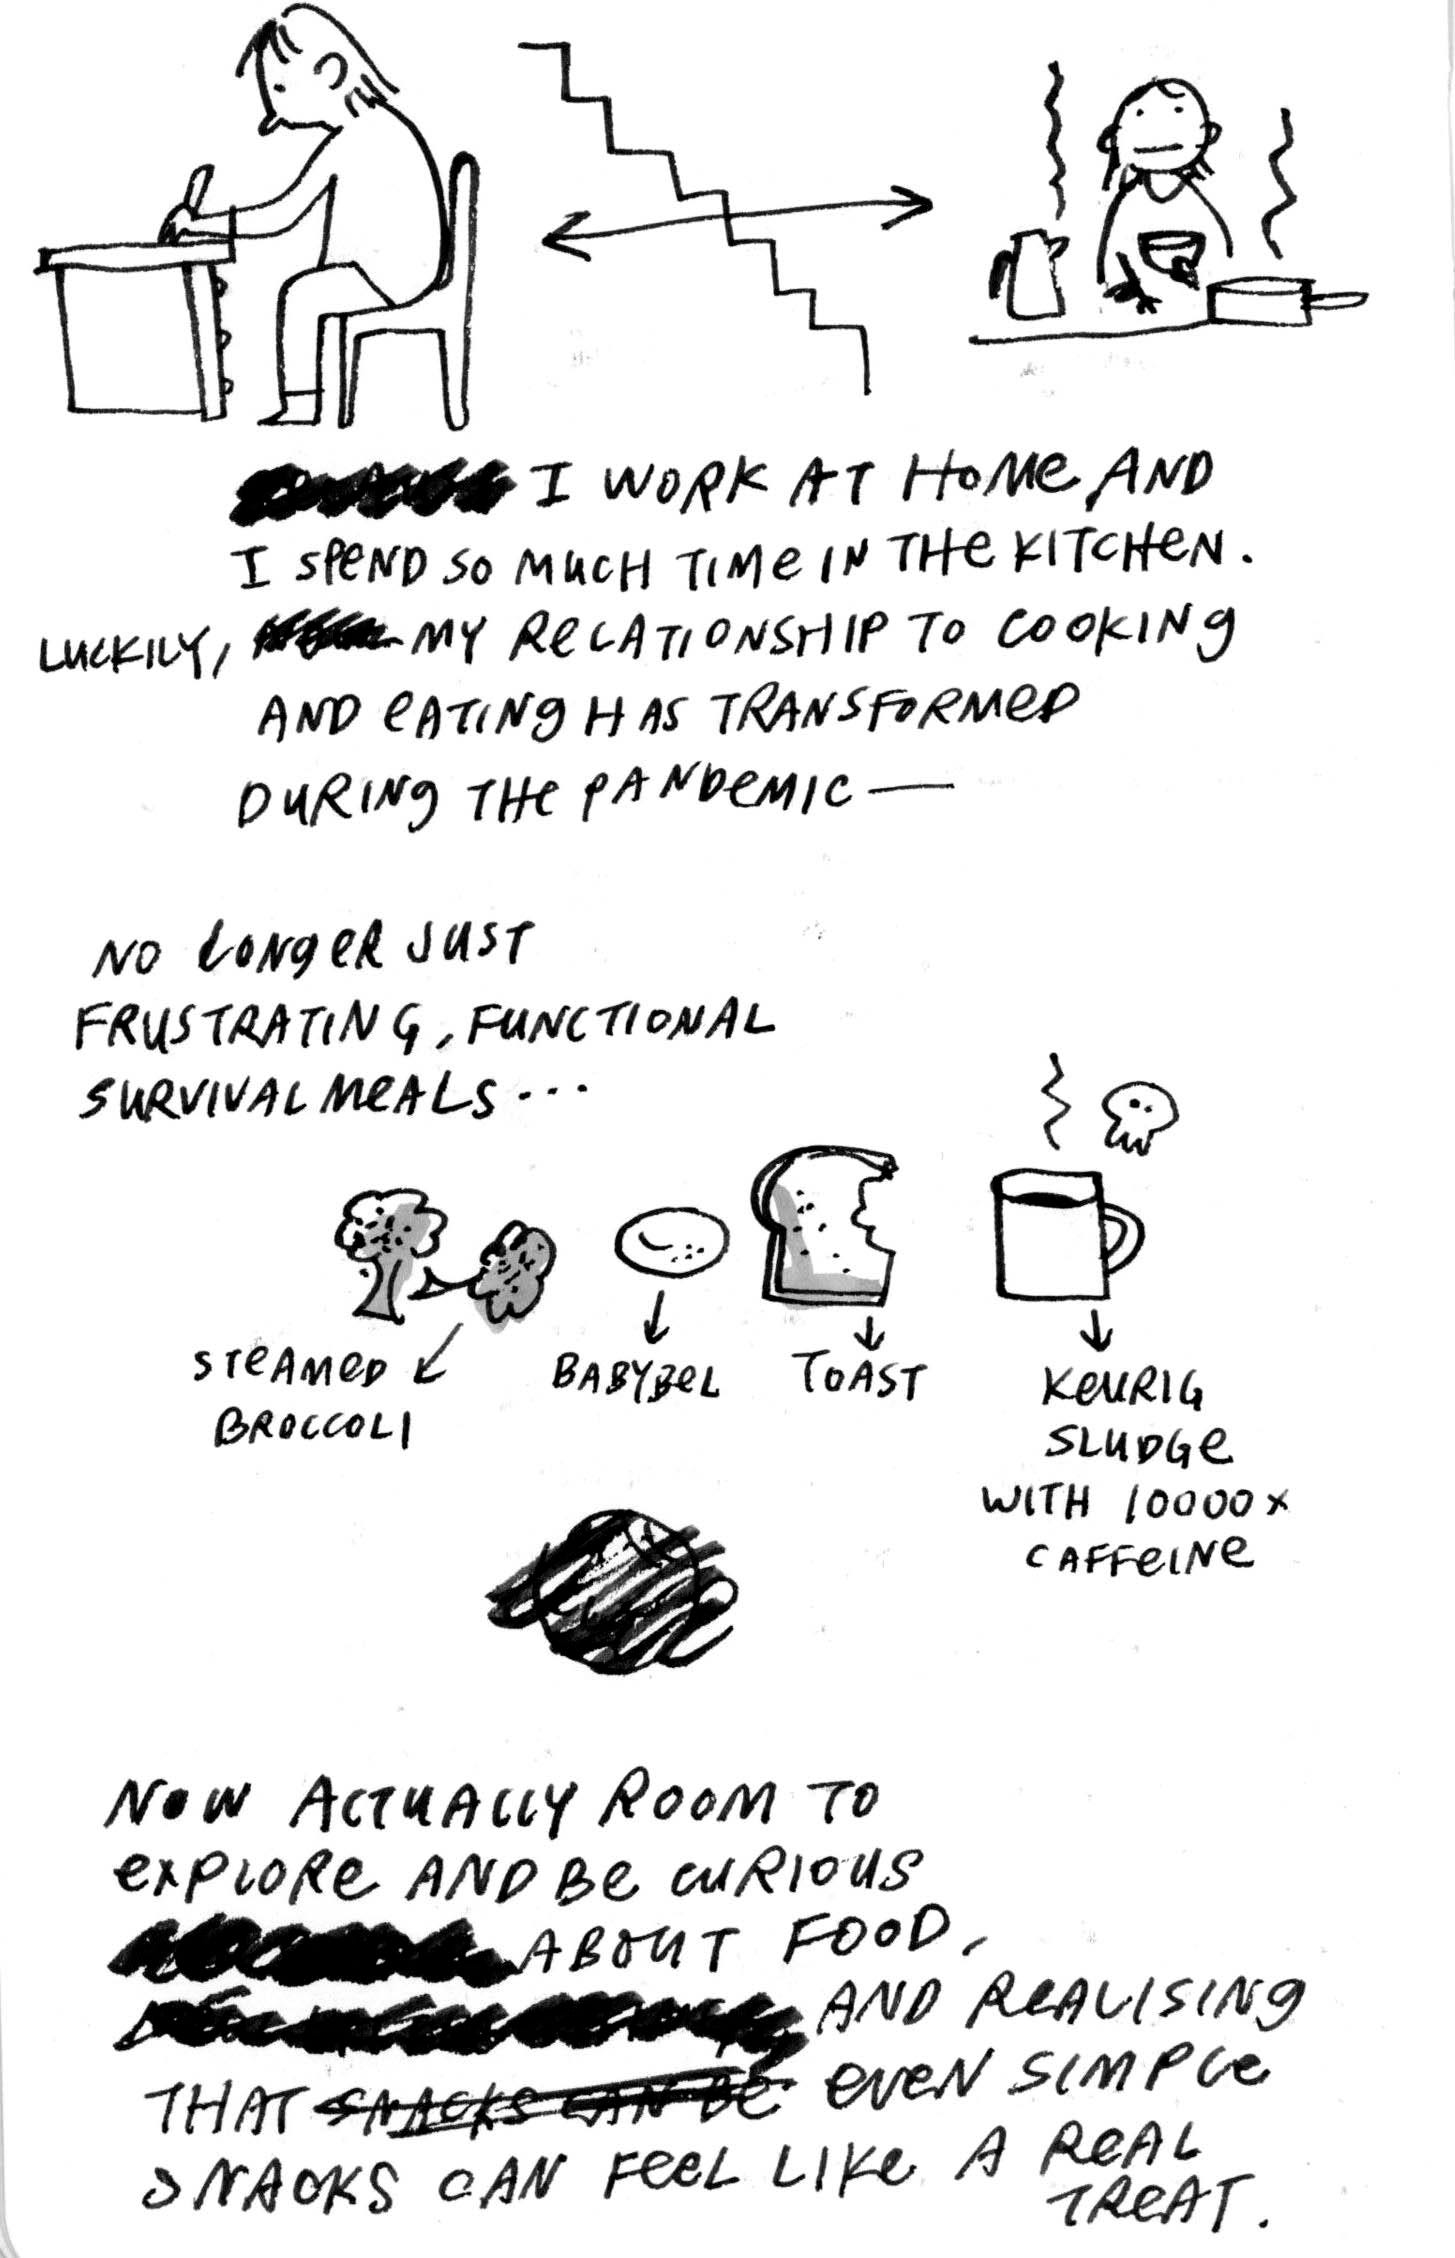 I WORK AT HOME AND
I SPEND SO MUCH TIME IN THE KITCHEN.
LUCKILY, MY RELATIONSHIP TO COOKING
AND EATING HAS TRANSFORMED
DURING THE PANDEMIC —
NO LONGER JUST
FRUSTRATING, FUNCTIONAL
SURVIVAL MEALS...
STEAMED
BROCCOLI
BABYBEL
TOAST
KEURIG
SLUDGE
WITH 10000x
CAFFEINE
NOW ACTUALLY ROOM TO
EXPLORE AND BE CURIOUS
ABOUT FOOD,
AND REALISING
THAT SNACKS CAN BE EVEN SIMPLE
SNACKS CAN FEEL LIKE A REAL
TREAT.